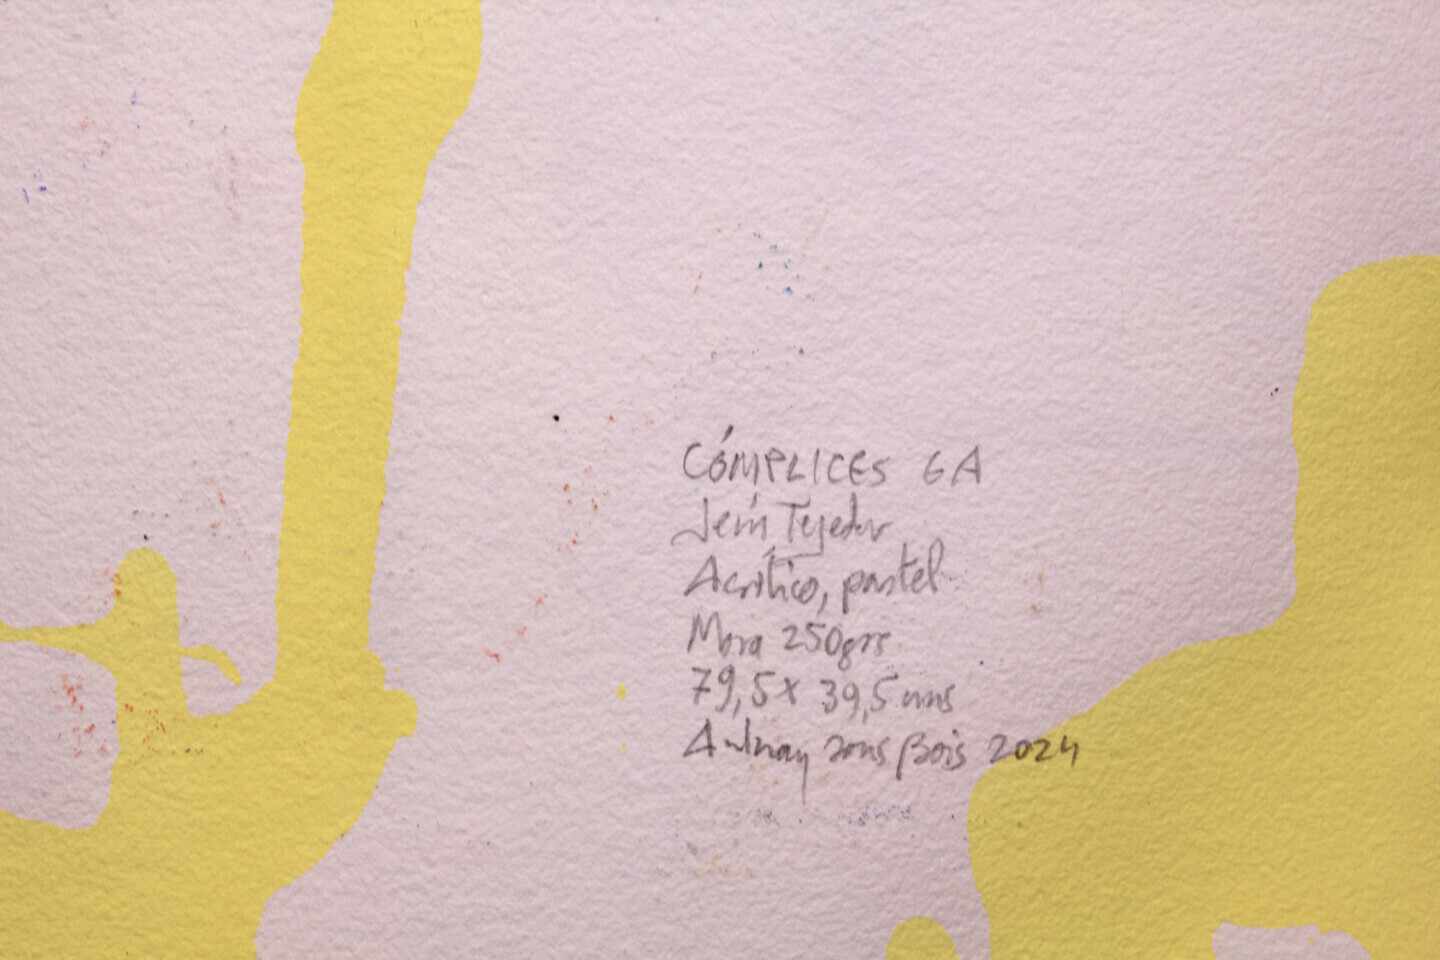 CÓMPLICES 6A
Jesús Tejedor
Acrílico, pastel
Mora 250grs
79,5 x 39,5 cms
Aulnay sous Bois 2024